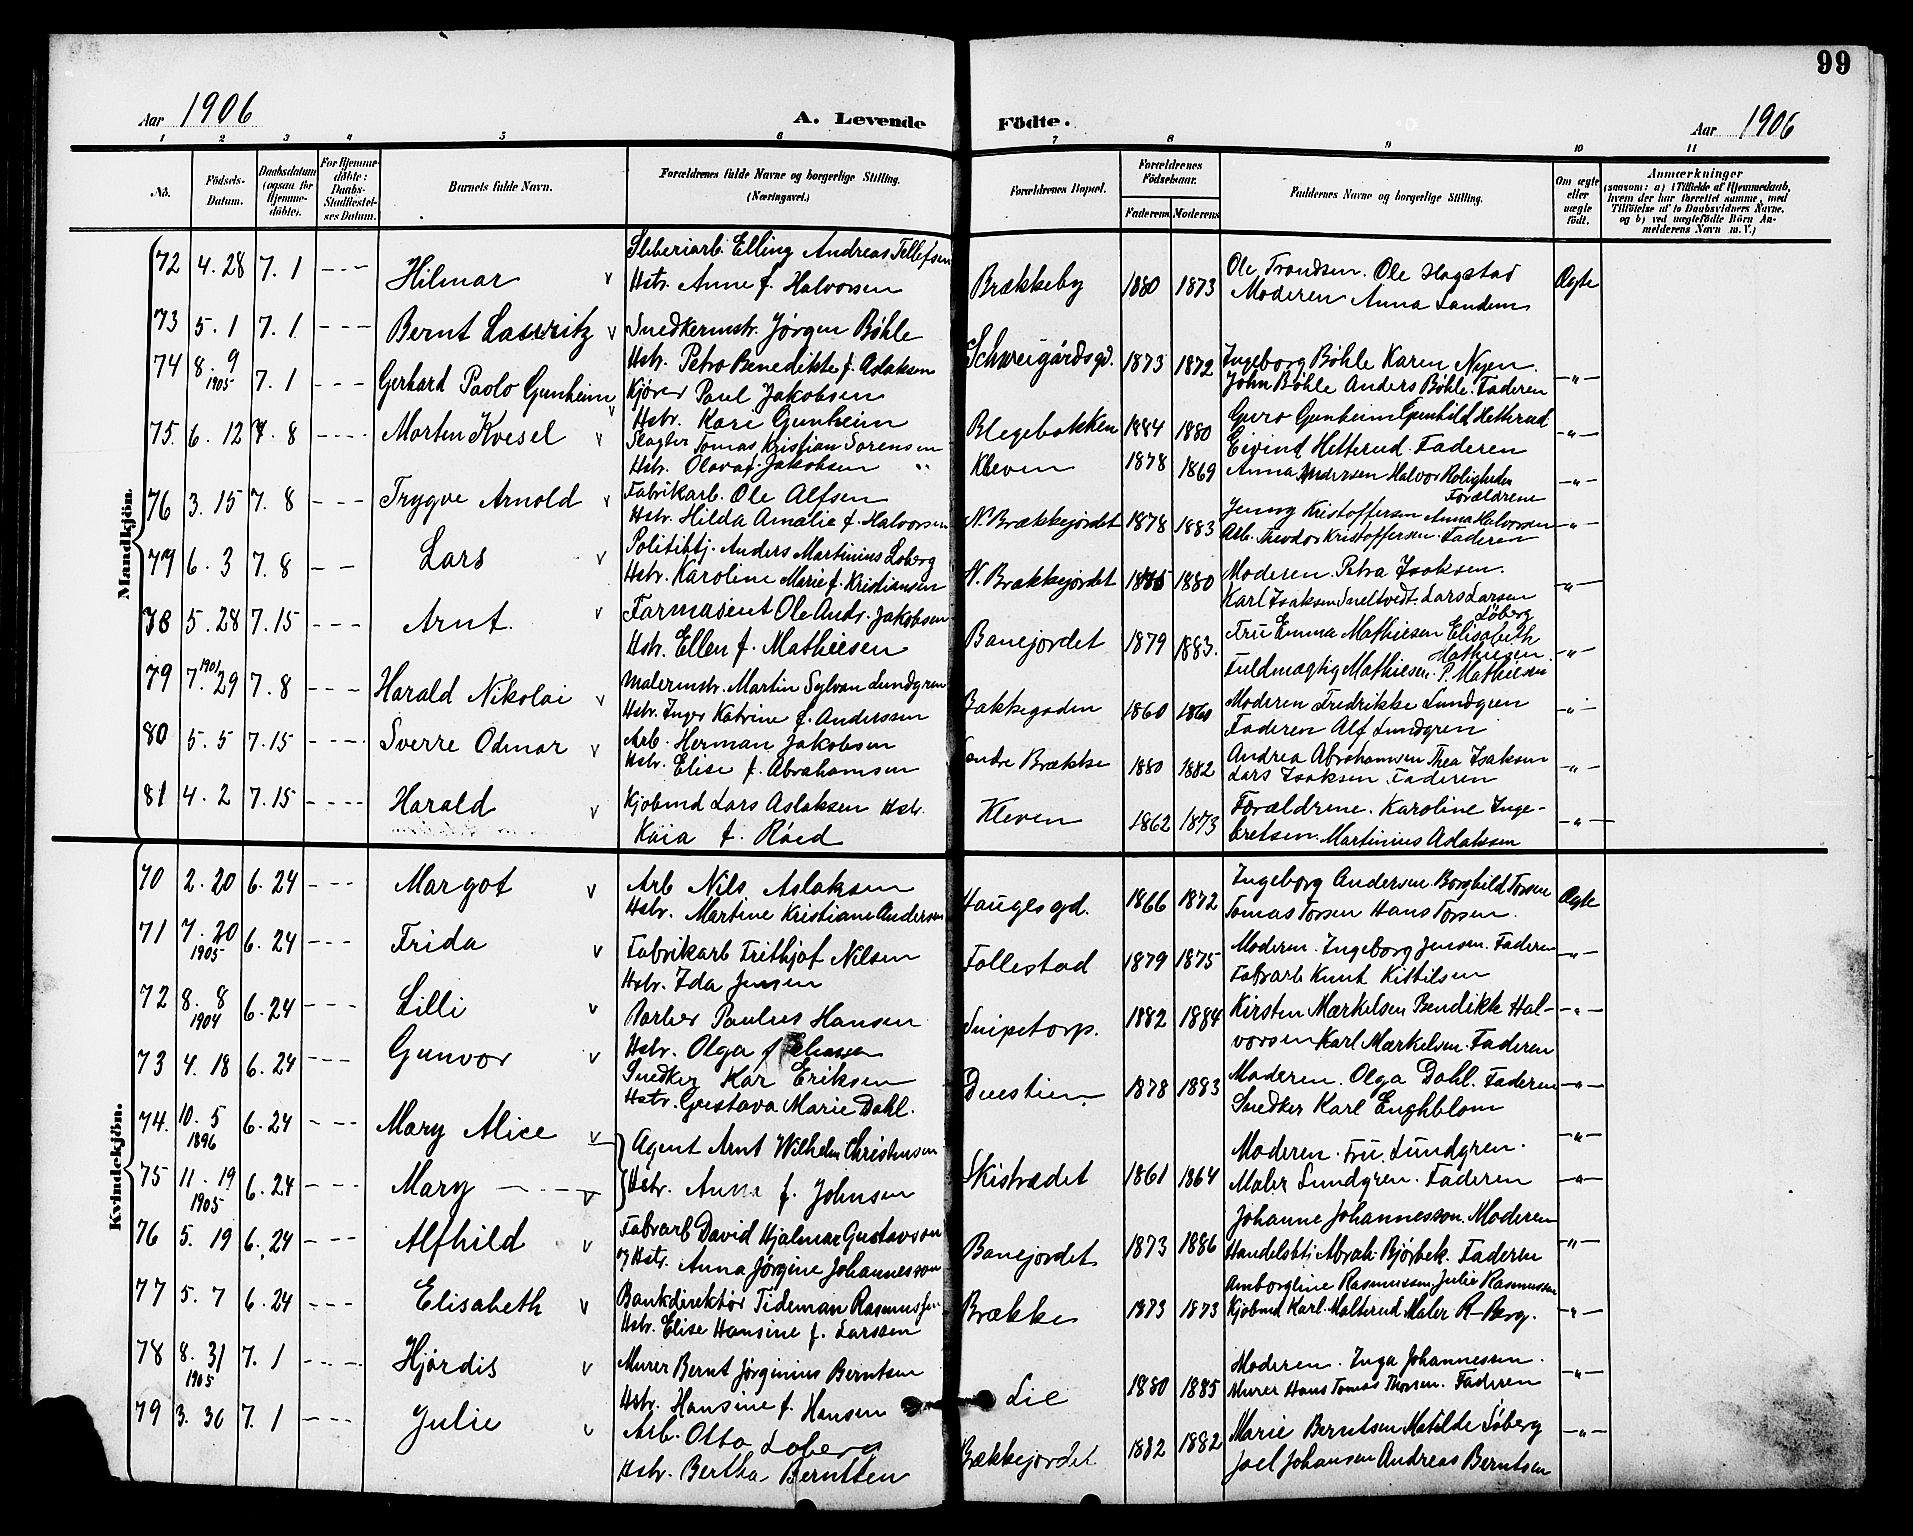 99
Aar 1906 A. Levende Födte. Aar 1906
1 2 3 4 5 6 7 8 9 10 11
No. Födsels-Datum. Daabsdatum (ogsaa for Hjemmedöbte). For Hjemmedöbte: Daabs-Stadfæstelses Datum. Barnets fulde Navn. Forældrenes fulde Navne og borgerlige Stilling. (Næringsvei.) Forældrenes Bopæl. Forældrenes Födselsaar. Faderens Moderens Faddernes Navne og borgerlige Stilling. Om ægte eller uægte födt. Anmærkninger (saasom: a) i Tilfælde af Hjemmedaab, hvem der har forrettet samme, med Tilföielse af to Daabsvidners Navne, og b) ved uægtefödte Börn Anmelderens Navn m. V.)
Mandkjön.
72 4. 28 7. 1 Hilmar Sliberiarb. Elling Andreas Tellefsen
Hstr. Anne f. Halvorsen Brækkeby 1880 1873 Ole Trondsen. Ole Hogstad
Moderen Anna Landem Ægte
73 5. 1 7. 1 Bernt Lauritz Snedkermstr. Jørgen Bøhle
Hstr. Petra Benedikte f. Aslaksen Schweigårdsgd. 1873 1872 Ingeborg Bøhle Karen Nyen.
John Bøhle Anders Bøhle. Faderen
74 8. 9 1905 7. 1 Gerhard Paolo Gunheim Kjører Paul Jakobsen
Hstr. Kari Gunheim Blegebakken 1884 1880 Guro Gunheim Gunhild Hetterud
Eivind Hetterud. Faderen
75. 6. 12 7. 8 Morten Kvesel Slagter Tomas Kristian Sorensen
Hstr. Olava f. Jakobsen Kleven 1878 1869 Anna Andersen Halvor Roligheden
Forældrene
76 3. 15 7. 8 Trygve Arnold Fabrikarb. Ole Alfsen
Hstr. Hilda Amalie f. Halvorsen N. Brækkejordet 1878 1883 Jenny Kristoffersen Anna Halvorsen
Arb. Theodor Kristoffersen. Faderen
77 6. 3 7. 8 Lars Politibtj. Anders Martinius Loberg
Hstr. Karoline Marie f. Kristiansen N. Brækkejordet 1880 Moderen. Petra Isaksen.
Karl Isaksen Sneltvedt. Lars Larsen
Løberg
78 5. 28 7. 15 Arnt. Farmaseut Ole Andr. Jakobsen
Hstr. Ellen f. Mathiesen Banejordet 1879 1883. Fru Emma Mathiesen Elisabeth
Mathiesen.
Fuldmægtig Mathiesen. P. Mathiesen
79 7. 29 1901 7. 8 Harald Nikolai Malermstr. Martin Sylvan Lundgren
Hstr. Inger Katrine f. Anderssen Bakkegaden 1860 1860 Moderen Fredrikke Lundgren
Faderen Alf Lundgren
80 5. 5 7. 15 Sverre Odmar Arb. Herman Jakobsen
Hstr. Elise f. Abrahamsen Søndre Brække 1880 1882 Andrea Abrahamsen Thea Isaksen
Lars Isaksen. Faderen
81 4. 2 7. 15 Harald Kjøbmd Lars Aslaksen Hstr.
Kaia f. Røed Kleven 1862 1873 Forældrene. Karoline Inge-
bretsen. Martinius Aslaksen
Kvindekjön.
70 2. 20 6. 24 Margot Arb Nils Aslaksen
Hstr. Martine Kristiane Andersen Haugesgd. 1866 1872 Ingeborg Andersen. Borghild Torsen
Tomas Torsen Hans Torsen. Ægte
71 7. 20 1905 6. 24 Frida Fabrikarb Frithjof Nilsen
Hstr. Ida Jensen Follestad 1879 1875 Moderen. Ingeborg Jensen. Faderen
Fabrarb Knut Kittilsen
72 8. 8 1904 6. 24 Lilli Barber Paulus Hansen
Hstr. Olga f Snipetorp. 1882 1884 Kirsten Mærkelsen Bendikk Hal-
vorsen Karl Mærkelsen. Faderen
73 4. 18 6. 24 Gunvor Snedker Kar Eriksen
Hstr. Gustava Marie Dahl. Duestien 1878 1883 Moderen. Olga Dahl. Faderen
Snedker Karl Enghblom
74. 10. 5 1896 6. 24 Mary Alice Agent Arnt Wilhelm Christensen
75 11. 19 1905 6. 24 Mary Hstr. Anna f. Johnsen Skistrædet 1861 1864 Moderen. Fru. Lundgren.
Maler Lundgren. Faderen
76 5. 19 6. 24 Alfhild Fabrarb David Hjalmar Gustavson
og Hstr. Anna Jørgine Johannesson Banejordet 1873 1886 Johanne Johannesson. Moderen
Handelsbtj Abrah. Bjørbek. Faderen
77 5. 7 6. 24 Elisabeth Bankdirektør Tideman Rasmussen
Hstr. Elise Hansine f. Larssen Brække 1873 1873 Amborgline Rasmussen Julie Rasmussen
Kjøbmd Karl Malterud Maler R-Berg.
78 8. 31 1905 7. 1 Hjørdis Murer Bernt Jørginius Berntsen
Hstr. Hansine f. Hansen Lie 1880 1885 Moderen. Inga Johannessen.
Murer Hans Tomas Thorsen. Faderen
79 3. 30 7. 1 Julie Arb. Otto Loberg
Hstr. Bertha Berntsen Brækkejordet 1882 1882 Marie Berntsen Matilde Søberg
Joel Johansen Andreas Berntsen